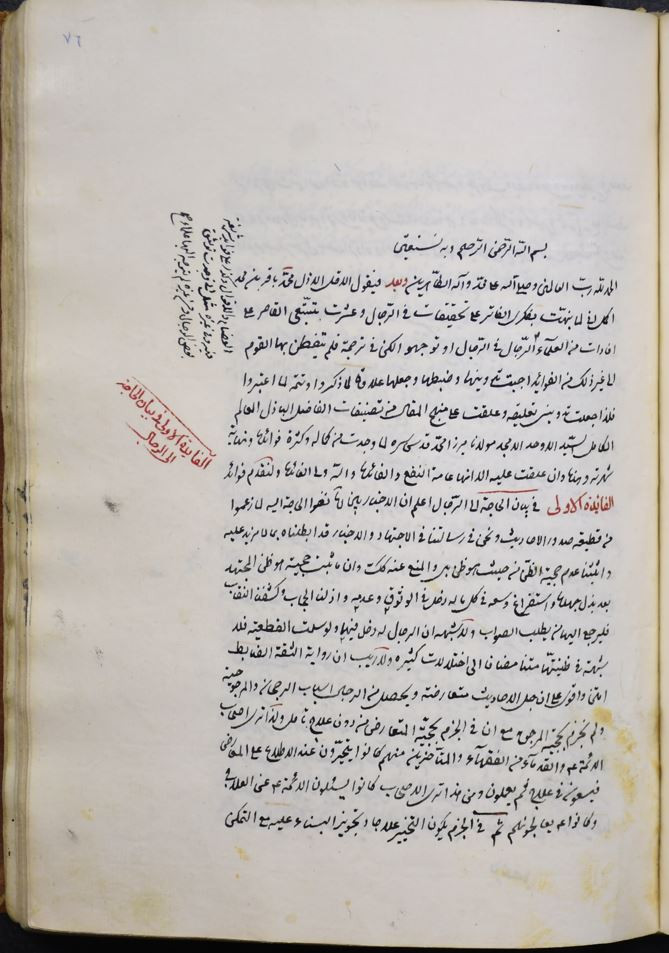 ٧٦
بسم الله الرحمن الرحيم وبه نستعين
الحمد لله رب العالمين وصلى الله على محمد وآله الطاهرين وبعد فيقول الاقل الاذل محمد باقر بن محمد
اكمل اني لما تنبهت بفكري الفاتر على تحقيقات في الرجال وعثرت بتتبعي القاصر على
افادات من العلماء في الرجال او توجهوا لكن في ترجمة فلم يتفطن بها القوم
الى غير ذلك من الفوائد احببت تدوينها وضبطها وجعلها علاوة لما ذكروا وتتمة لما اعتبروا
فلذا جعلت تدويني تعليقة وعلقت على منهج المقال من تصنيفات الفاضل الباذل العالم
الكامل السيد الاوحد الامجد مولانا ميرزا محمد قدس سره لما وجدت من كماله وكثرة فوائده ونهاية
شهرته وان علقت عليه الا انها عامة النفع والفائدة والله ولي الفائدة ولنقدم فوائد
الفائدة الاولى في بيان الحاجة الى الرجال اعلم ان الاخباريين نفوا الحاجة اليه لما زعموا
من قطعية صدور الاحاديث ونحن في رسالتنا في الاجتهاد والاخبار قد ابطلناه بما لا مزيد عليه
واثبتنا عدم حجية الظن من حيث هو ظن والمنع عنه كذلك وان ما ثبت حجيته هو ظن المجتهد
بعد بذل جهده واستفراغ وسعه في كل ما له دخل في الوثوق وعدمه وازلنا الحجاب وكشفنا النقاب
فليرجع اليها من يطلب الصواب ولا شبهة ان الرجال له دخل فيهما ولو سلمت القطعية فلا
شبهة في ظنيتها متنا مضافا الى اختلالات كثيرة ولا ريب ان رواية الثقة الضابط
امتن واقوى على ان جل الاحاديث متعارضة ويحصل من الرجال اسباب الرجحان والمرجوحية
ولم نجزم بحجية المرجوح مع ان في الجزم بحجية المتعارض من دون علاج تأمل ولذا ترى اصحاب
الائمة ع والقدماء من الفقهاء والمتأخرين منهم كانوا يتحيرون عند الاطلاع على المعارض
فيسعون في علاج ثم يعملون ومن هذا ترى الاصحاب كانوا يسئلون الائمة ع عن العلاج
وكانوا ع يعالجون لهم ثم في الجزم بكون التخيير علاجا وتجويز البناء عليه مع التمكن
الفائدة الاولى في بيان الحاجة
الى الرجال